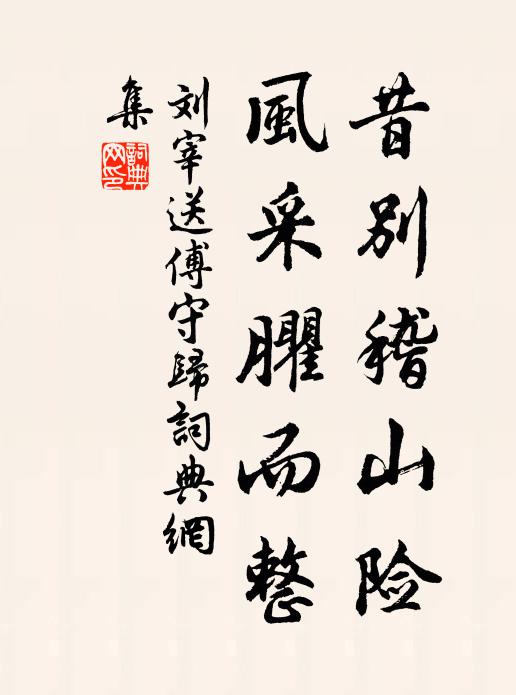 昔别稽山险
風采臞而整
刘宰送傅守歸詞典網
集
詞典
网印